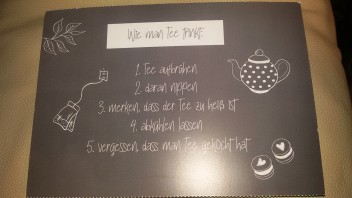 Wie man Tee trinkt:
1. Tee aufbrühen
2. daran nippen
3. merken, dass der Tee zu heiß ist
4. abkühlen lassen
5. vergessen, dass man Tee gekocht hat